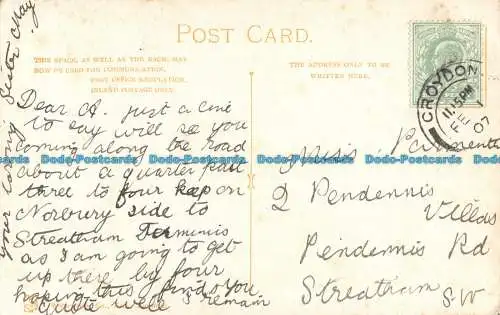 POST CARD.
THIS SPACE, AS WELL AS THE BACK, MAY
NOW BE USED FOR COMMUNICATION.
POST OFFICE REGULATION.
INLAND POSTAGE ONLY.
THE ADDRESS ONLY TO BE
WRITTEN HERE.
CROYDON
11.15 PM
FE 1
07
Dear A. just a line
to say will see you
coming along the road
about a quarter past
three to four keep on
Norbury side to
Streatham Terminis
as I am going to get
up there by four
hoping this finds you
quite well I remain
your loving Sister May
Miss Parmenter
2 Pendennis
Villas
Pendennis Rd
Streatham
S.W
Dodo-Postcards Dodo-Postcards Dodo-Postcards Dodo-Postcards Dodo-Postcards
Dodo-Postcards Dodo-Postcards Dodo-Postcards Dodo-Postcards Dodo-Postcards